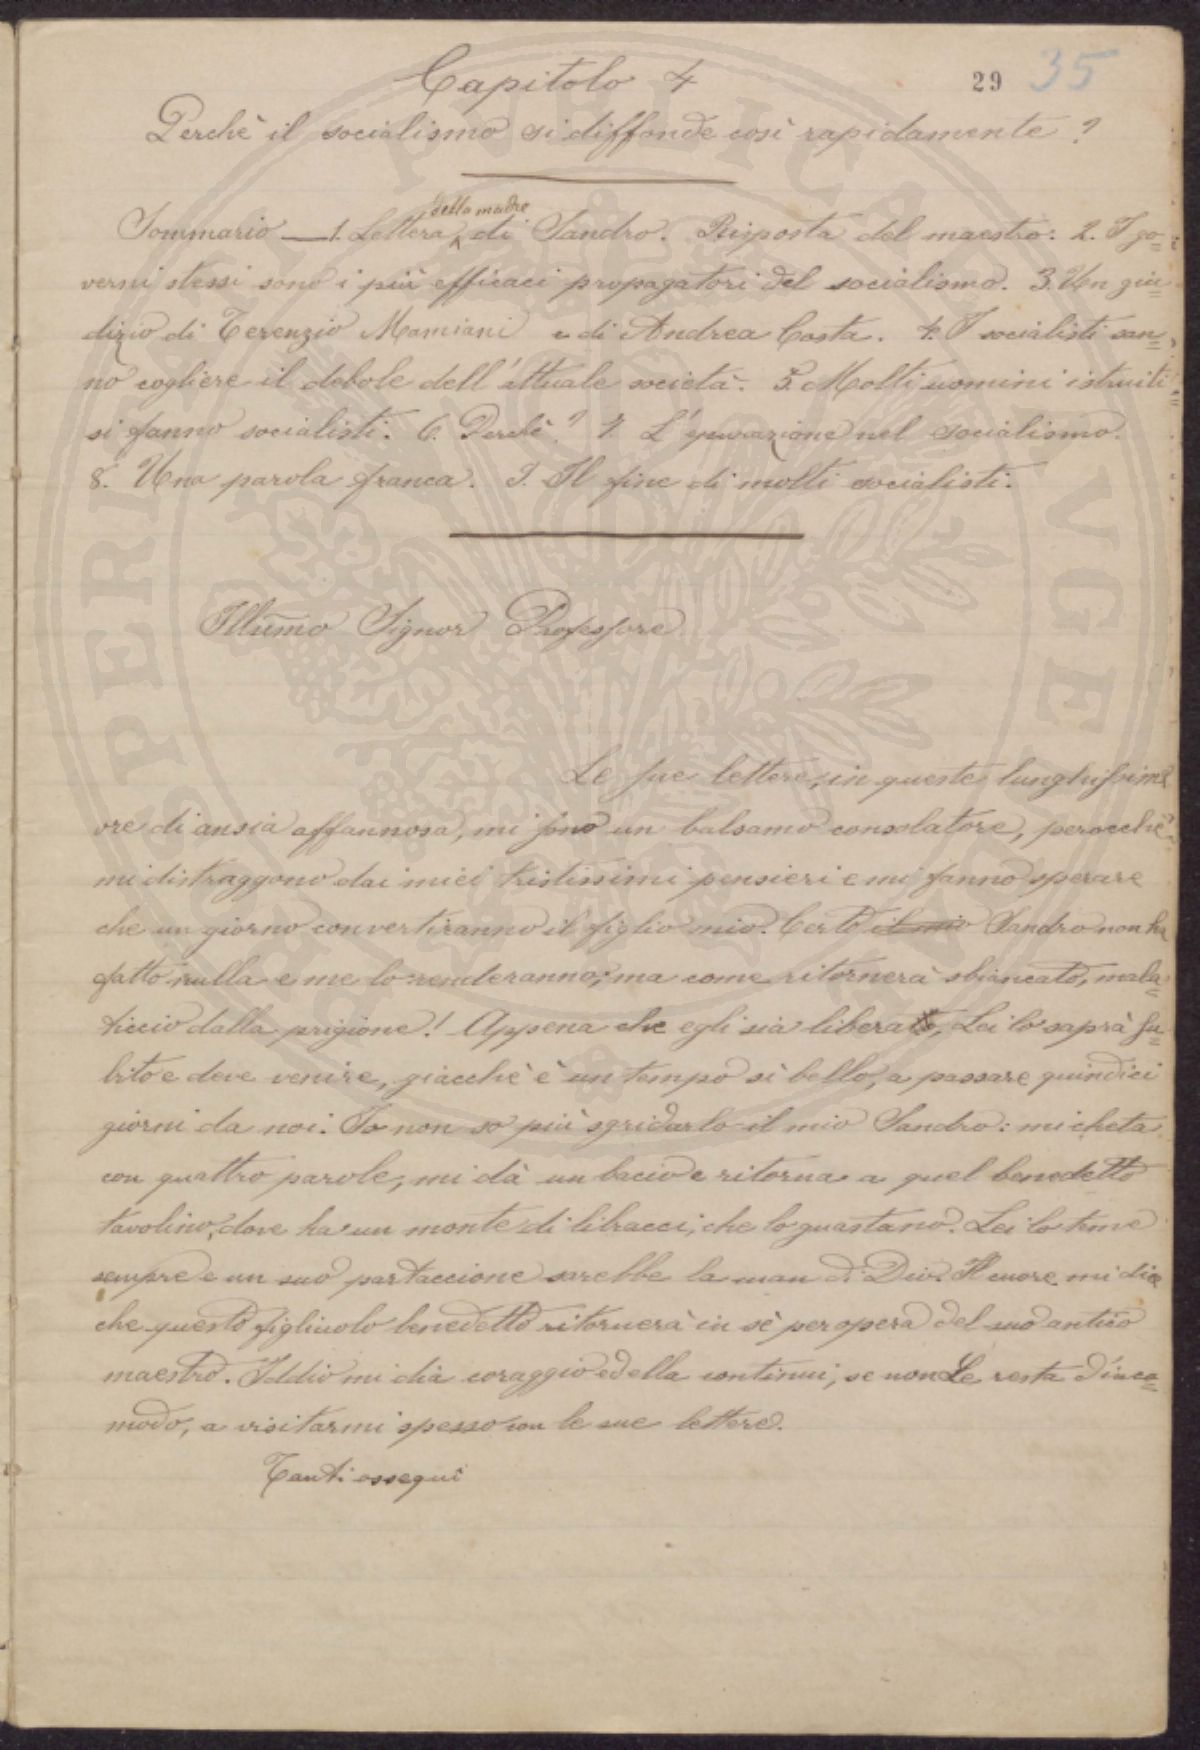 Capitolo 4
29 35
Perchè il socialismo si diffonde così rapidamente?
della madre
Sommario — 1. Lettera di Sandro. Risposta del maestro. 2. I go=
verni stessi sono i più efficaci propagatori del socialismo. 3. Un giu=
dizio di Terenzio Mamiani e di Andrea Costa. 4. I socialisti san=
no cogliere il debole dell'attuale società. 5. Molti uomini istruiti
si fanno socialisti. 6. Perchè? 7. L'epurazione nel socialismo.
8. Una parola franca. 9. Il fine di molti socialisti.
Illumo Signor Professore
Le sue lettere, in queste lunghissime
ore di ansia affannosa, mi sono un balsamo consolatore, perocchè
mi distraggono dai miei tristissimi pensieri e mi fanno sperare
che un giorno convertiranno il figlio mio. Certo il mio Sandro non ha
fatto nulla e me lo renderanno; ma come ritornerà sbiancato, mala=
ticcio dalla prigione! Appena che egli sia liberato, Lei lo saprà su=
bito e deve venire, giacchè è un tempo sì bello, a passare quindici
giorni da noi. Io non so più sgridarlo il mio Sandro: mi cheta
con quattro parole, mi dà un bacio e ritorna a quel benedetto
tavolino, dove ha un monte di libracci, che lo guastano. Lei lo teme
sempre e un suo partaccione sarebbe la man di Dio. Il cuore mi dice
che questo figliuolo benedetto ritornerà in sè per opera del suo antico
maestro. Iddio mi dia coraggio ed ella continui, se non Le resta d'inco=
modo, a visitarmi spesso con le sue lettere.
Tanti ossequi